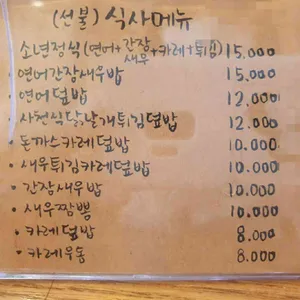 (선불) 식사메뉴
소년정식(연어+간장새우+카레+튀김) 15.000
· 연어간장새우밥 15.000
· 연어덮밥 12.000
· 사천식닭날개튀김덮밥 12.000
· 돈까스카레덮밥 10.000
· 새우튀김카레덮밥 10.000
· 간장새우밥 10.000
· 새우짬뽕 10.000
· 카레덮밥 8.000
· 카레우동 8.000